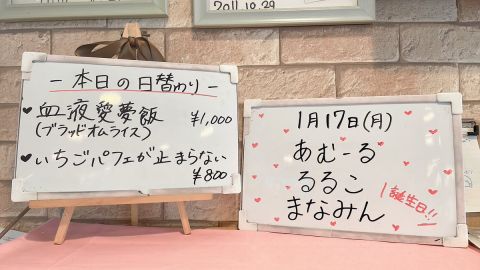 2011.10.29
- 本日の日替わり -
♥血液愛夢飯
(ブラッドオムライス)
¥1,000
♥いちごパフェが止まらない
¥800
1月17日(月)
あむーる
るるこ
まなみん
誕生日!!